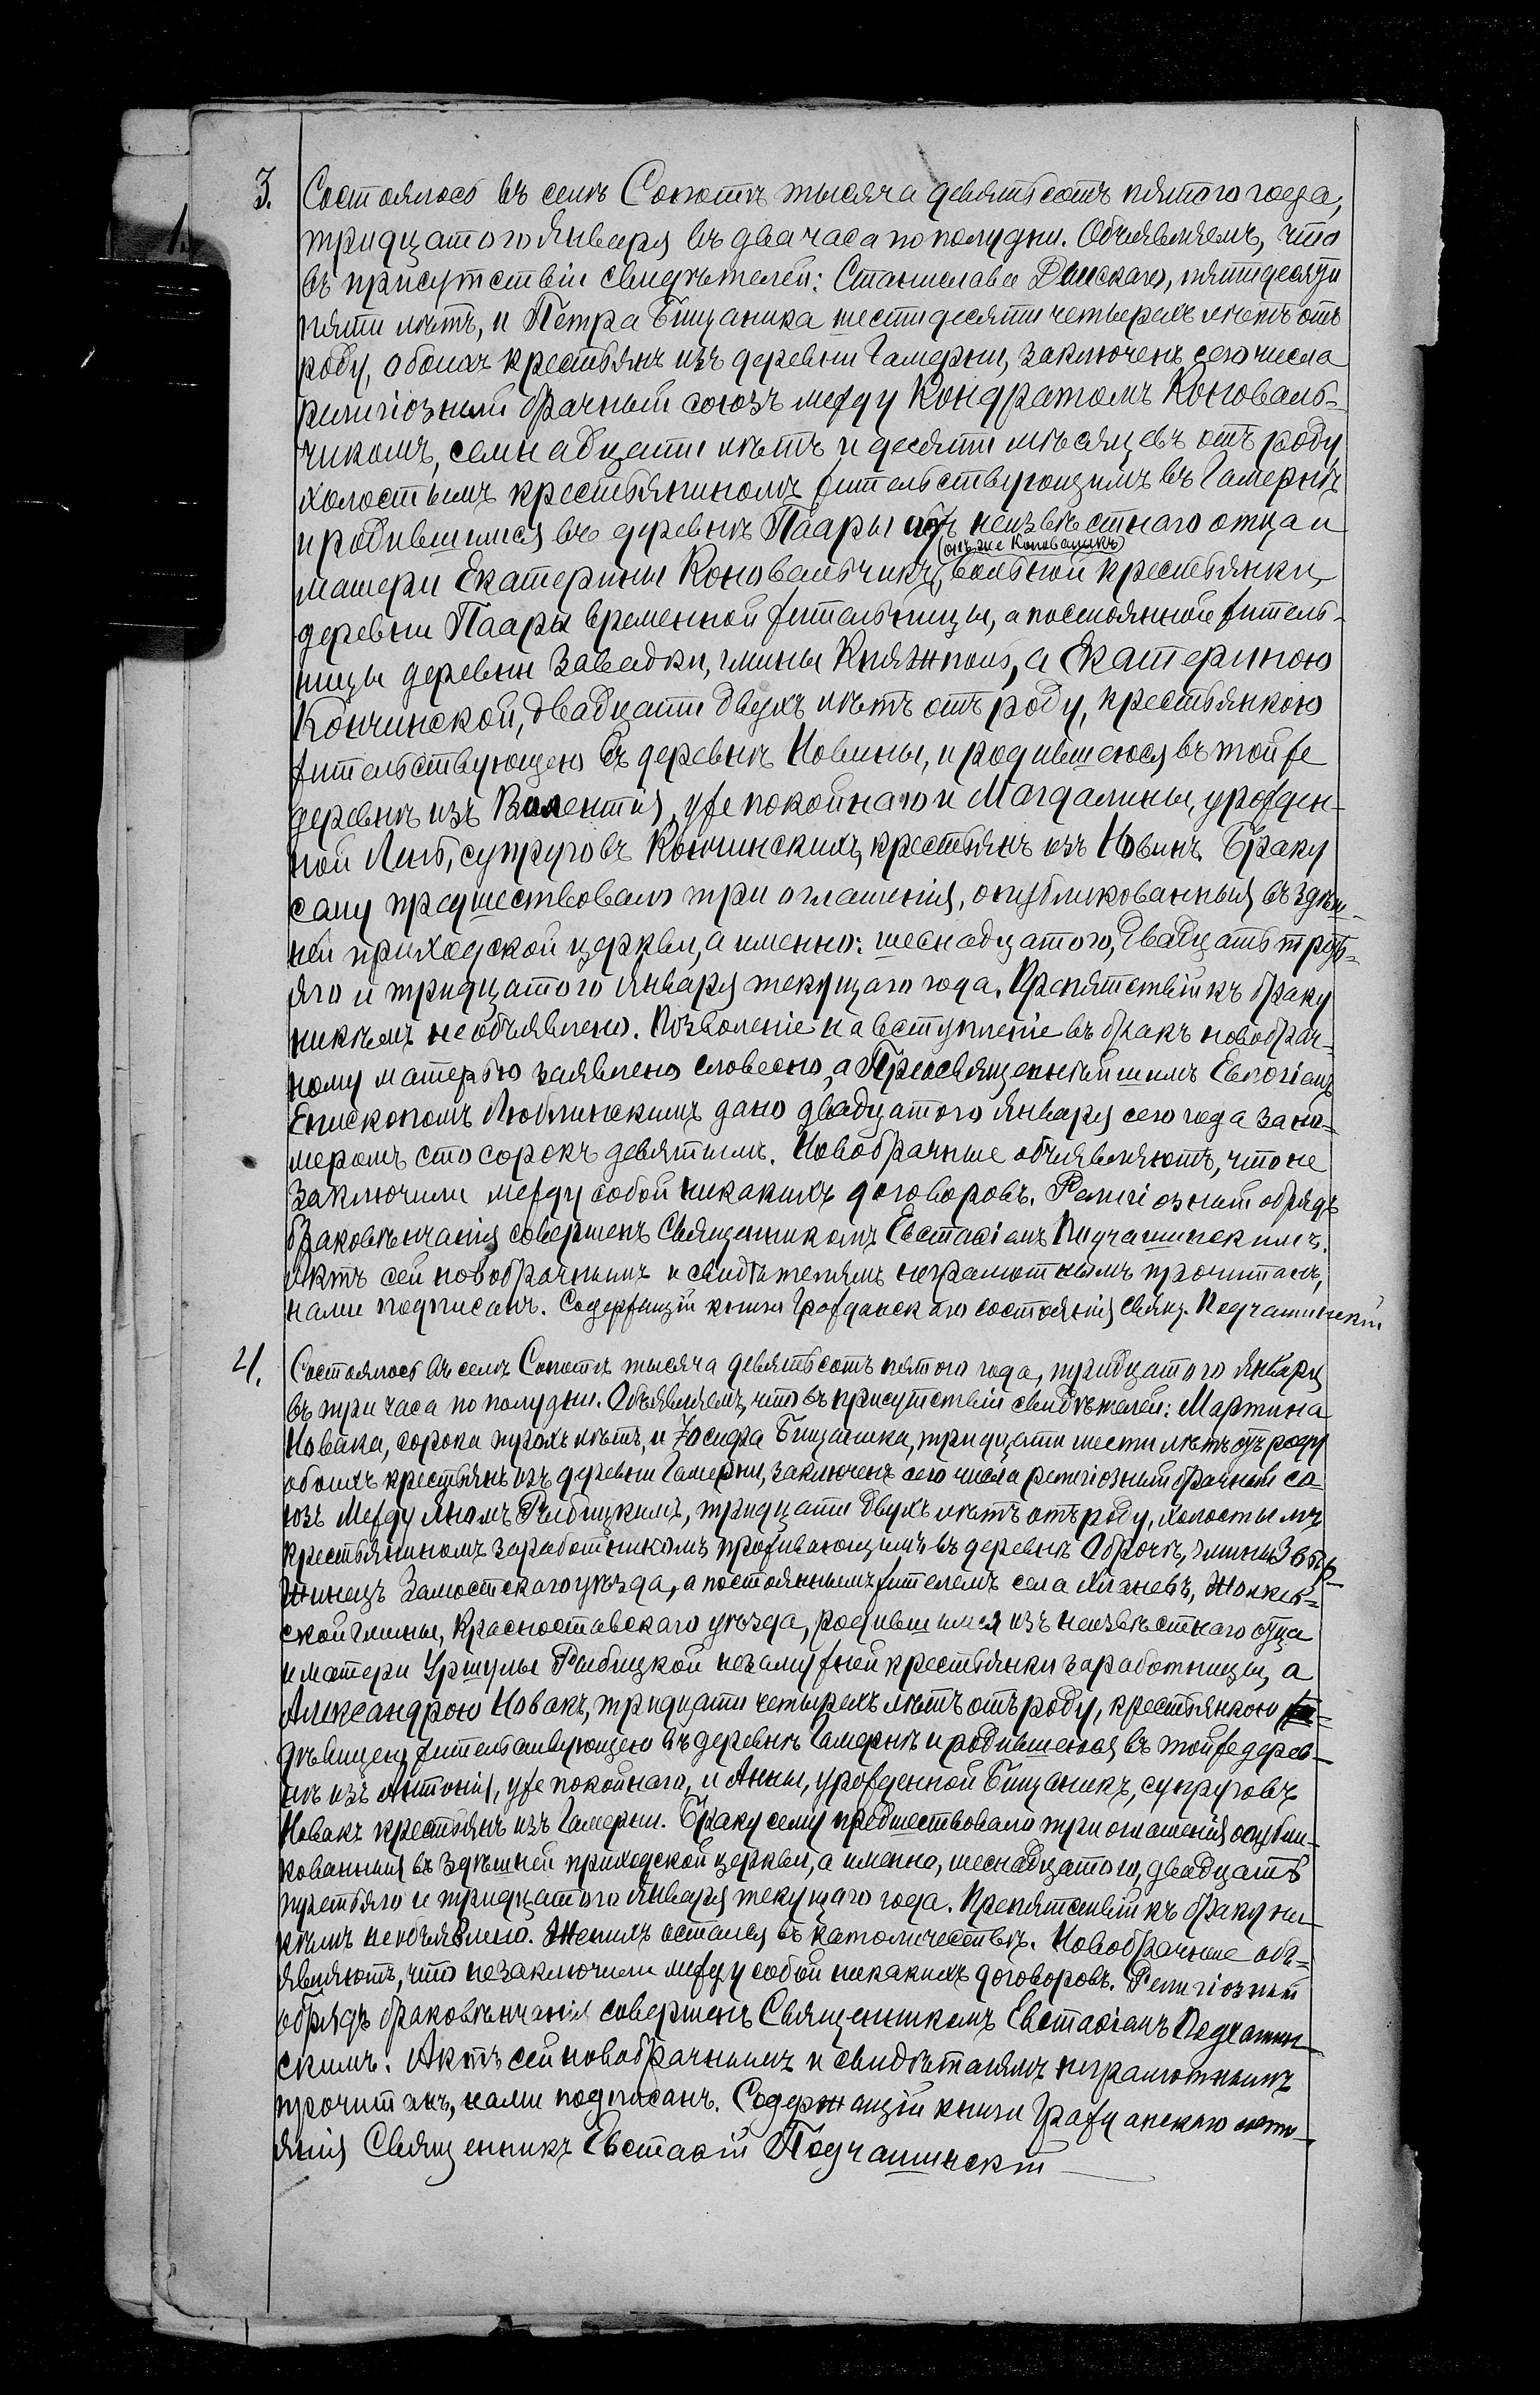 3. Состоялось въ селѣ Сопотѣ тысяча девятьсотъ пятого года,
тридцатого Января въ два часа по полудни. Объявляемъ, что
въ присутствіи свидѣтелей: Станислава пятидесяти
пяти лѣтъ, и Петра Бищаника шестидесяти четырехъ лѣтъ отъ
роду, обоихъ крестьянъ изъ деревни Гамерни, заключенъ сего числа
религіозный брачный союзъ между Кондратомъ Коноваль-
чикомъ, семнадцати лѣтъ и десяти мѣсяцевъ отъ роду
холостымъ крестьяниномъ жительствующимъ въ Гамернѣ
и родившимся въ деревнѣ Паары отъ неизвѣстнаго отца и
(онъ же Коноваликъ)
матери Екатерины Коновальчикъ, вольной крестьянки,
деревни Паары временной жительницы, а постоянной житель-
ницы деревни Завадки, гмины Княжполь, а Екатериною
Кончинской, двадцати двухъ лѣтъ отъ роду, крестьянкою
жительствующею въ деревнѣ Новины, и родившеюся въ той же
деревнѣ изъ Валентія, уже покойнаго и Магдалины, урожден-
ной Лисъ, супруговъ Кончинскихъ, крестьянъ изъ Новинъ. Браку
сему предшествовало три оглашенія, опубликованныя въ здѣш-
ней приходской церкви, а именно: шеснадцатого, двадцать треть-
яго и тридцатого Января текущаго года. Препятствій къ браку
никѣмъ не объявлено. Позволеніе на вступленіе въ бракъ новобрач-
ному матерью заявлено словесно, а Преосвященнѣйшимъ Евлогіемъ
Епископомъ Люблинскимъ дано двадцатого Января сего года за но-
меромъ сто сорокъ девятымъ. Новобрачные объявляютъ, что не
заключили между собой никакихъ договоровъ. Религіозный обрядъ
браковѣнчанія совершенъ Священникомъ Евстафіемъ Подчашинскимъ.
Актъ сей новобрачнымъ и свидѣтелямъ неграмотнымъ прочитанъ,
нами подписанъ. Содержащій книги Гражданскаго состоянія Свящ. Подчашинскій
4. Состоялось въ селѣ Сопотѣ тысяча девятьсотъ пятого года, тридцатого Января
въ три часа по полудни. Объявляемъ, что въ присутствіи свидѣтелей: Мартина
Новака, сорока трехъ лѣтъ, и Іосифа Бищаника, тридцати шести лѣтъ отъ роду
обоихъ крестьянъ изъ деревни Гамерни, заключенъ сего числа религіозный брачный со-
юзъ между Яномъ Рыбицкимъ, тридцати двухъ лѣтъ отъ роду, холостымъ
крестьяниномъ заработникомъ проживающимъ въ деревнѣ Оброчъ, гмины Звѣр-
жинецъ Замостскаго уѣзда, а постояннымъ жителемъ села Хланевъ, Жолкев-
ской гмины, Красноставскаго уѣзда, родившимся изъ неизвѣстнаго отца
и матери Уршулы Рыбицкой незамужней крестьянки заработницы, а
Александрою Новакъ, тридцати четырехъ лѣтъ отъ роду, крестьянкою
дѣвицею, жительствующею въ деревнѣ Гамернѣ и родившеюся въ той же дерев-
нѣ изъ Антонія, уже покойнаго, и Анны, урожденной Бищаникъ, супруговъ
Новакъ крестьянъ изъ Гамерни. Браку сему предшествовало три оглашенія опубли-
кованныя въ здѣшней приходской церкви, а именно, шеснадцатого, двадцать
третьяго и тридцатого Января текущаго года. Препятствій къ браку ни-
кѣмъ не объявлено. Женихъ остался въ католичествѣ. Новобрачные объ-
являютъ, что не заключили между собой никакихъ договоровъ. Религіозный
обрядъ браковѣнчанія совершенъ Священникомъ Евстафіемъ Подчашин-
скимъ. Актъ сей новобрачнымъ и свидѣтелямъ неграмотнымъ
прочитанъ, нами подписанъ. Содержащій книги Гражданскаго состо-
янія Священникъ Евстафій Подчашинскій